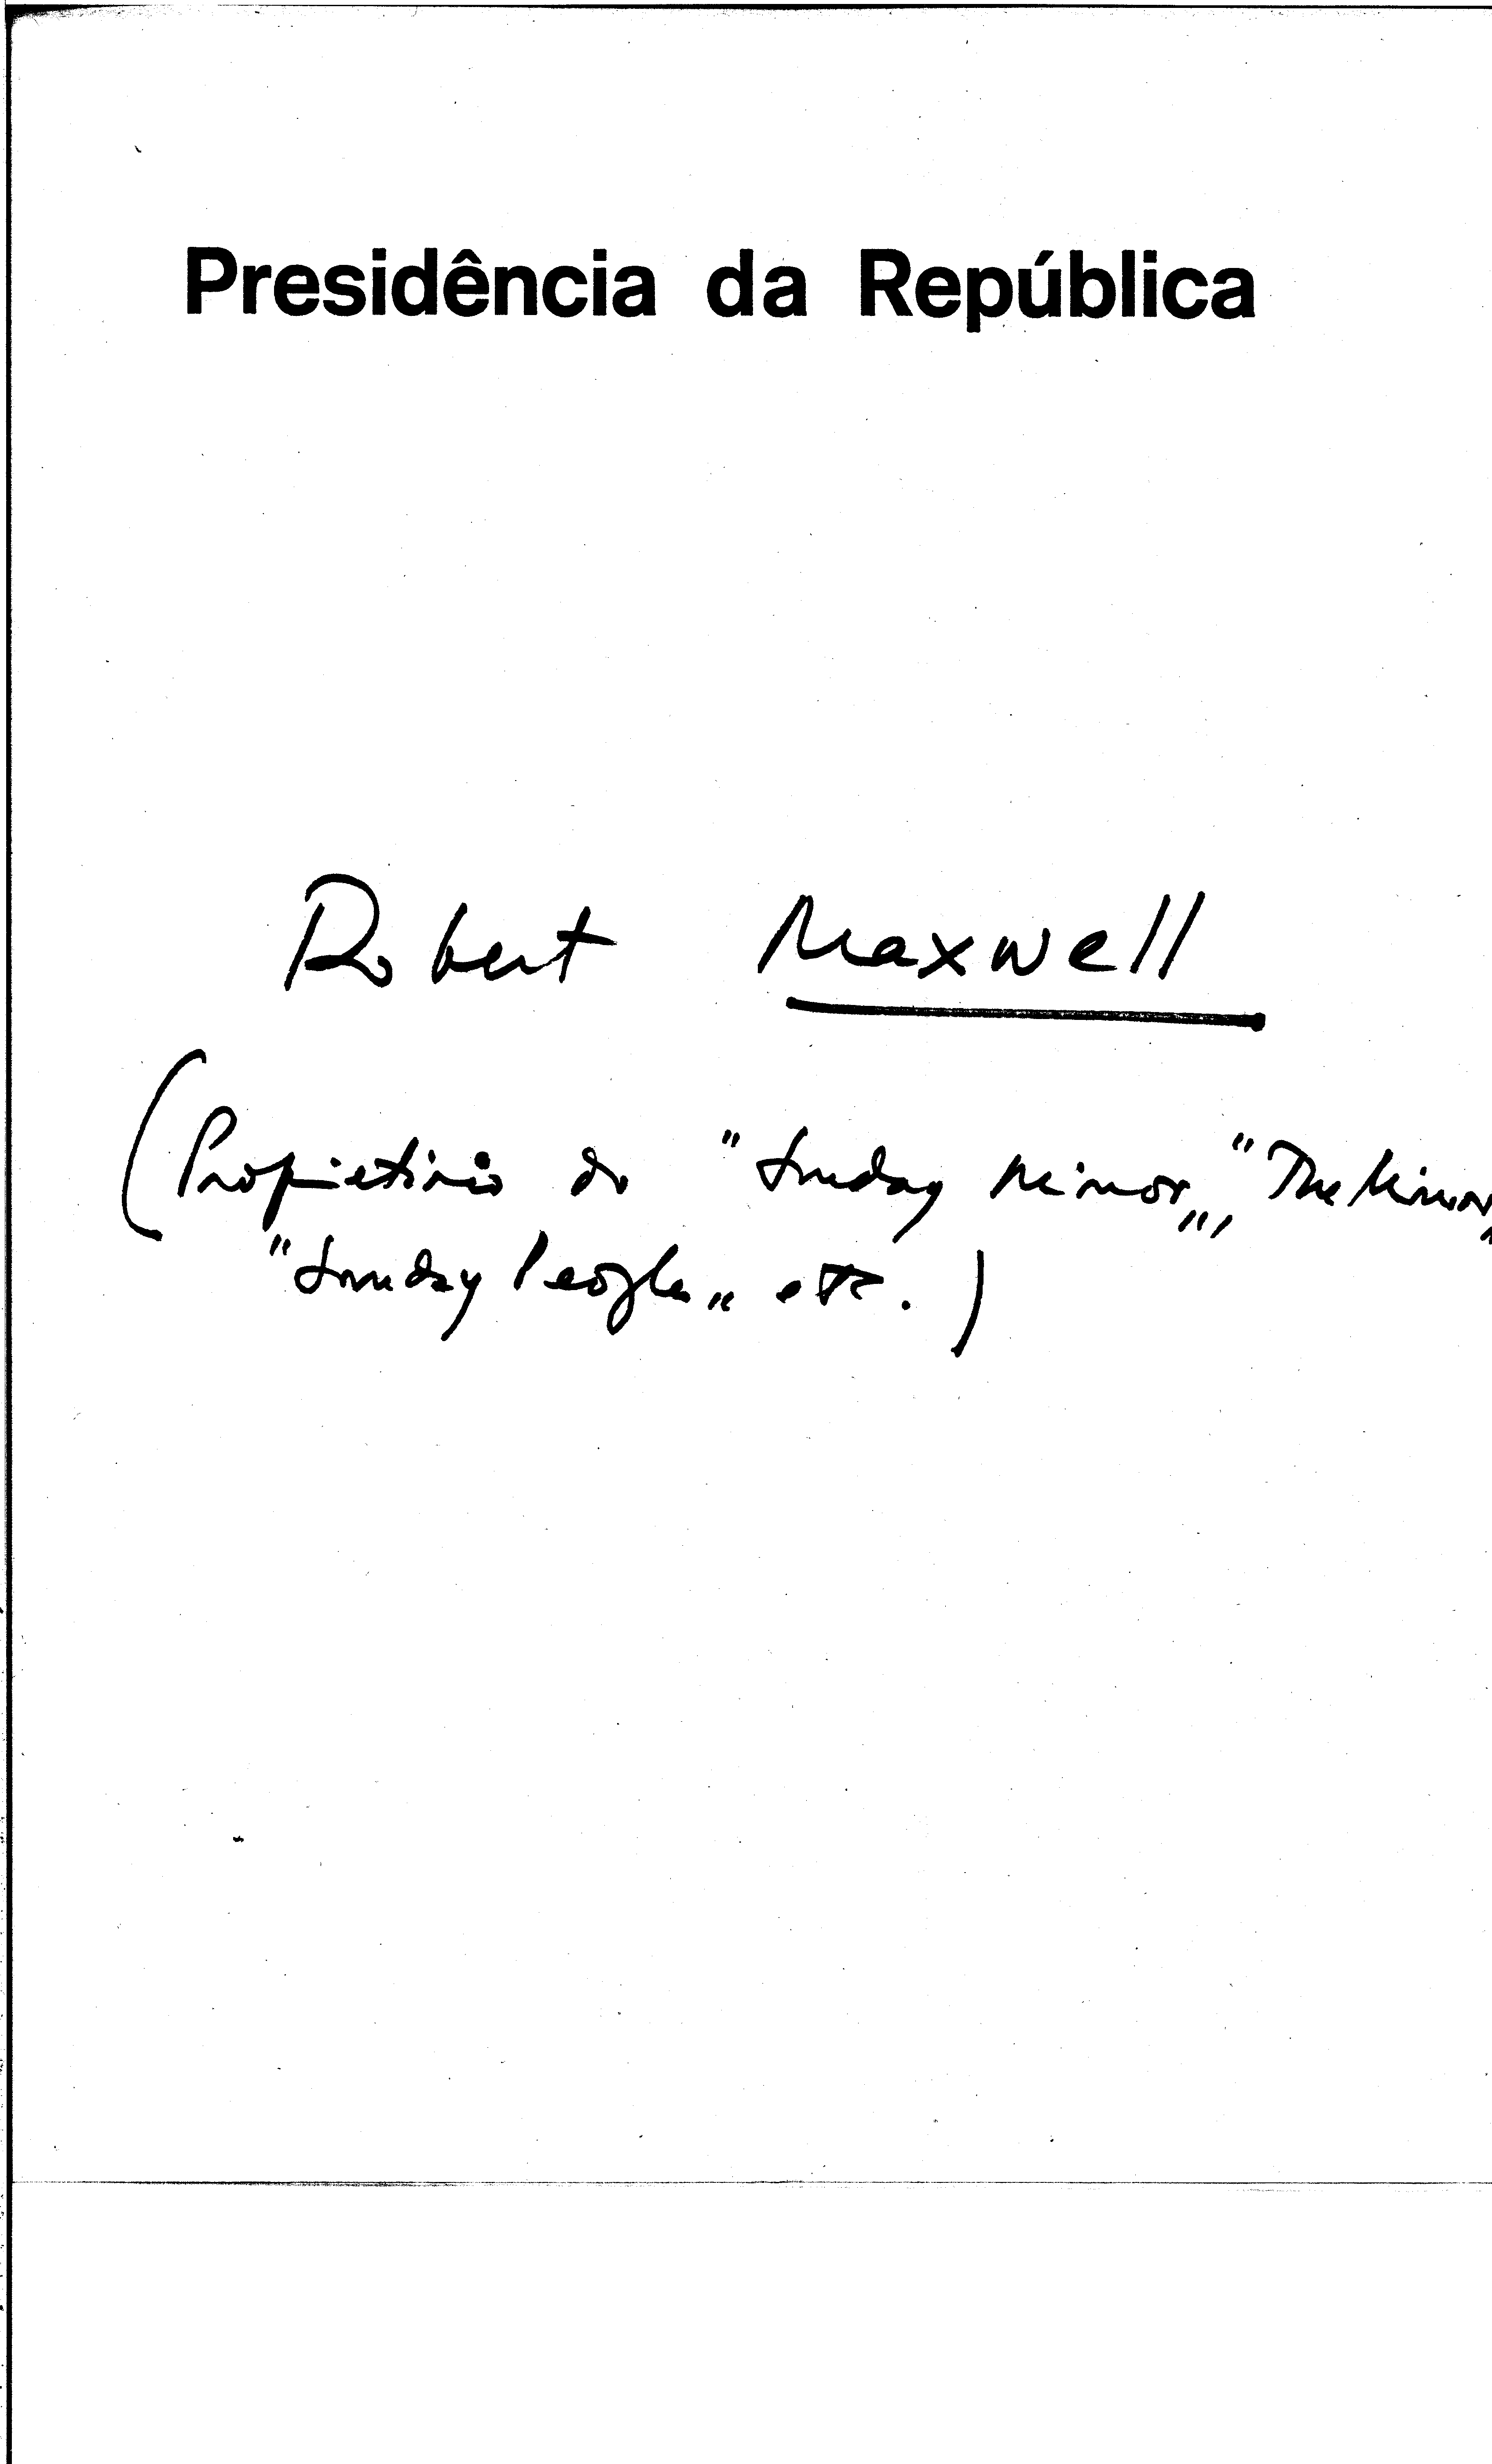 Presidência da República
Robert Maxwell
(Proprietário do "Sunday Mirror", "The Mirror"
"Sunday People" etc.)